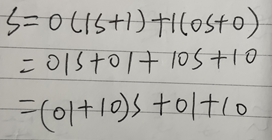 S=0(1S+1)+1(0S+0)
=01S+01+10S+10
=(01+10)S+01+10